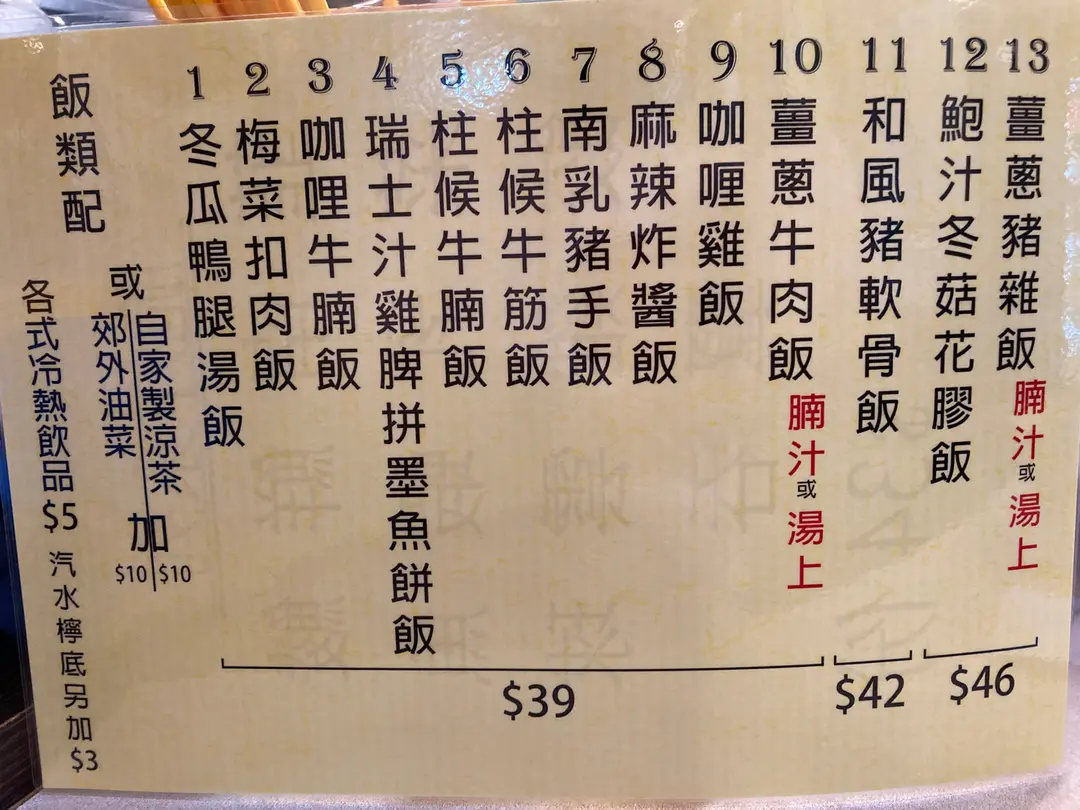 飯類配
各式冷熱飲品 $5
汽水檸底另加 $3
或
郊外油菜
自家製涼茶
加
$10
$10
1 冬瓜鴨腿湯飯
2 梅菜扣肉飯
3 咖哩牛腩飯
4 瑞士汁雞脾拼墨魚餅飯
5 柱候牛腩飯
6 柱候牛筋飯
7 南乳豬手飯
8 麻辣炸醬飯
9 咖喱雞飯
10 薑蔥牛肉飯 腩汁或湯上
$39
11 和風豬軟骨飯
$42
12 鮑汁冬菇花膠飯
13 薑蔥豬雜飯 腩汁或湯上
$46